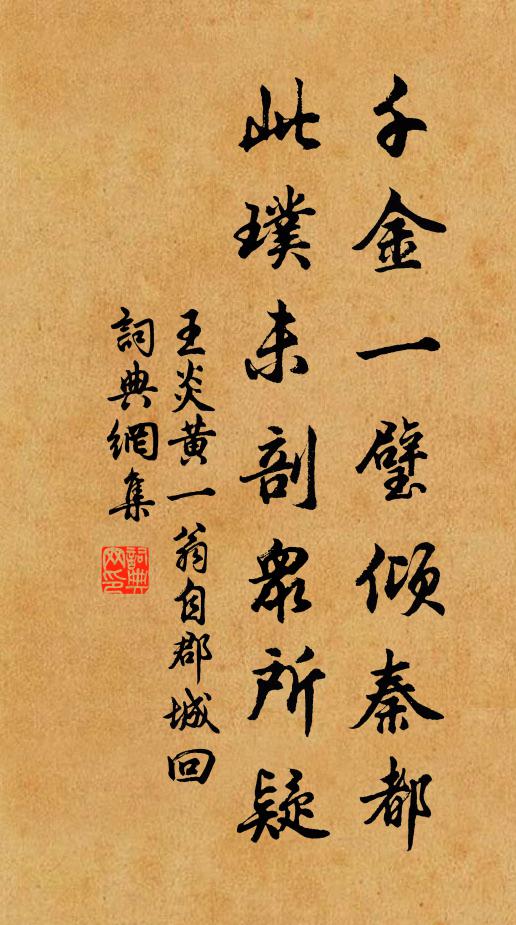 千金一璧傾秦都
此璞未剖衆所疑
王炎黄一翁自郡城回
詞典網集
詞典網印